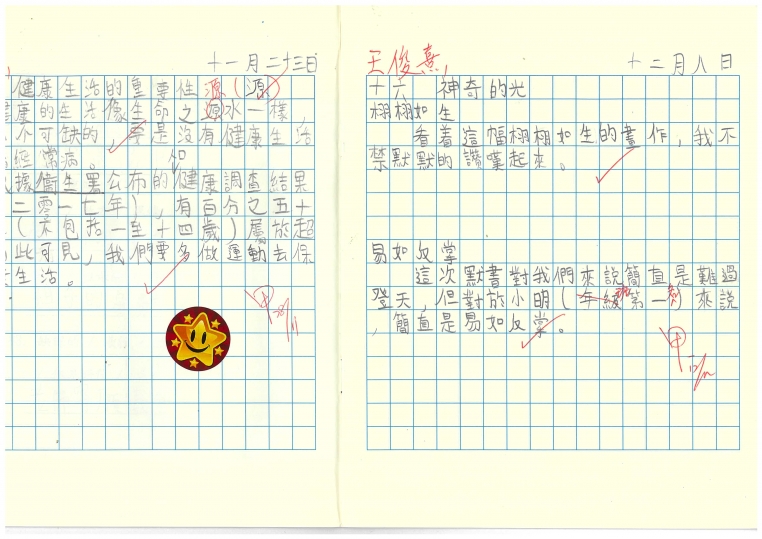 十一月二十三日
健康生活的重要性 源(源)
康的生活像生命之源水一樣,
不可缺的。要是沒有健康生活
經常病。
據衞生署公布的健康調查結果
二零一七年),有百分之五十
(不包括一至十四歲)屬於超
此可見,我們要多做運動去保
生活。
甲
王俊熹
十二月八日
十六 神奇的光
栩栩如生
看着這幅栩栩如生的畫作,我不
禁默默的讚嘆起來。
易如反掌
這次默書對我們來說簡直是難過
登天,但對於小明(年級第一)來說
,簡直是易如反掌。
甲